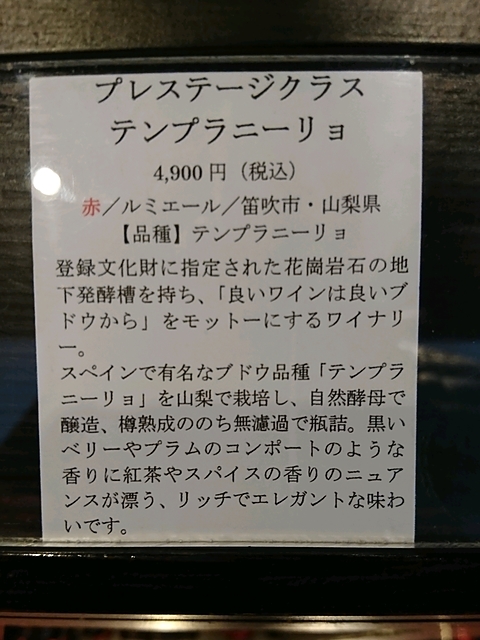 プレステージクラス
テンプラニーリョ
4,900円（税込）
赤／ルミエール／笛吹市・山梨県
【品種】テンプラニーリョ
登録文化財に指定された花崗岩石の地
下発酵槽を持ち、「良いワインは良いブ
ドウから」をモットーにするワイナリ
ー。
スペインで有名なブドウ品種「テンプラ
ニーリョ」を山梨で栽培し、自然酵母で
醸造、樽熟成ののち無濾過で瓶詰。黒い
ベリーやプラムのコンポートのような
香りに紅茶やスパイスの香りのニュア
ンスが漂う、リッチでエレガントな味わ
いです。